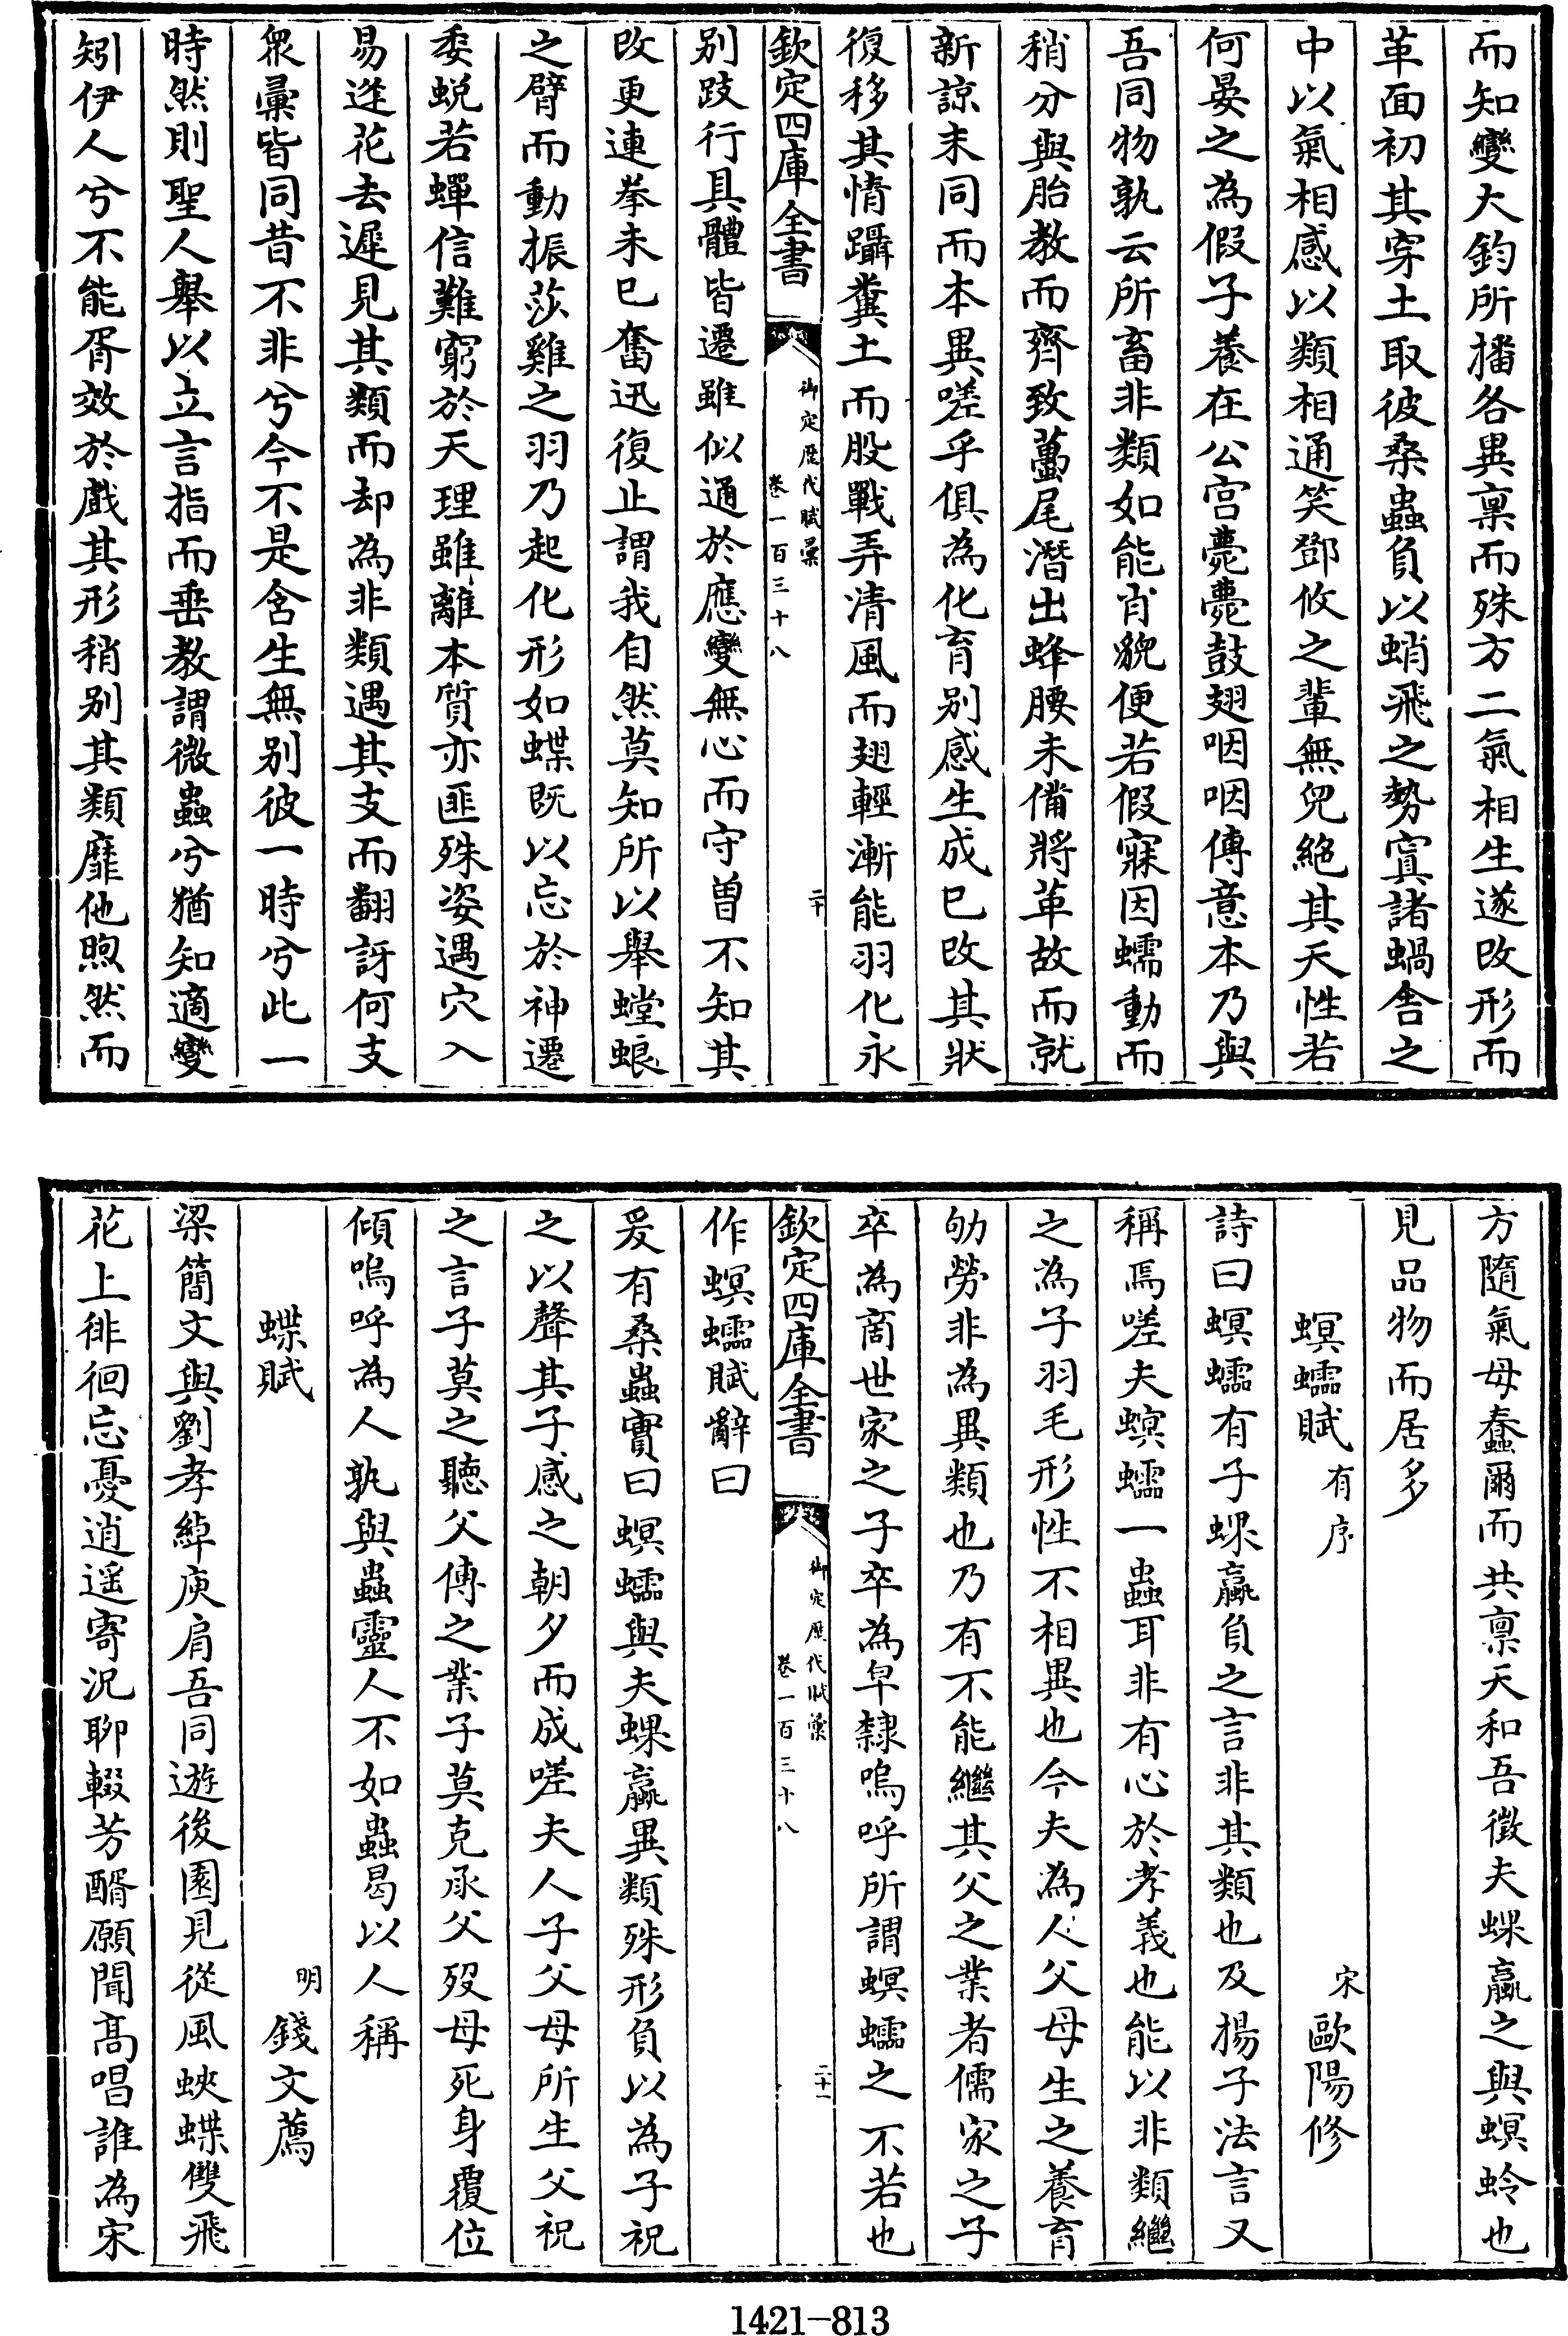 而知變大鈞所播各異稟而殊方二氣相生遂改形而
革面初其穿土取彼桑蟲負以蛸飛之勢寘諸蝸舍之
中以氣相感以類相通笑鄧攸之輩無兒絕其天性若
何晏之為假子養在公宮薨薨鼓翅咽咽傳意本乃與
吾同物孰云所畜非類如能肖貌便若假寐因蠕動而
稍分與胎教而齊致蠆尾潛出蜂腰未備將革故而就
新諒末同而本異嗟乎俱為化育别感生成已改其狀
復移其情躡糞土而股戰弄清風而翅輕漸能羽化永
欽定四庫全書
御定歴代賦彙
卷一百三十八
二十
别跂行具體皆遷雖似通於應變無心而守曾不知其
改更連拳未已奮迅復止謂我自然莫知所以舉螳蜋
之臂而動振莎雞之羽乃起化形如蝶既以忘於神遷
委蛻若蟬信難窮於天理雖離本質亦匪殊姿遇穴入
易逆花去遲見其類而却為非類遇其支而翻訝何支
衆彙皆同昔不非兮今不是含生無别彼一時兮此一
時然則聖人舉以立言指而垂教謂微蟲兮猶知適變
矧伊人兮不能胥效於戲其形稍别其類靡他煦然而
方隨氣母蠢爾而共稟天和吾徵夫蜾蠃之與螟蛉也
見品物而居多
螟蠕賦有序
宋歐陽修
詩曰螟蠕有子蜾蠃負之言非其類也及揚子法言又
稱焉嗟夫螟蠕一蟲耳非有心於孝義也能以非類繼
之為子羽毛形性不相異也今夫為人父母生之養育
劬勞非為異類也乃有不能繼其父之業者儒家之子
卒為商世家之子卒為皁隸嗚呼所謂螟蠕之不若也
欽定四庫全書
御定歴代賦彙
卷一百三十八
二十一
作螟蠕賦辭曰
爰有桑蟲實曰螟蠕與夫蜾蠃異類殊形負以為子祝
之以聲其子感之朝夕而成嗟夫人子父母所生父祝
之言子莫之聽父傳之業子莫克承父歿母死身覆位
傾嗚呼為人孰與蟲靈人不如蟲曷以人稱
蝶賦
明錢文薦
梁簡文與劉孝綽庾肩吾同遊後園見從風蛺蝶雙飛
花上徘徊忘憂逍遥寄況聊輟芳醑願聞高唱誰為宋
1421-813